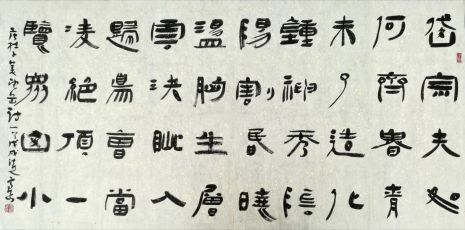 岱宗夫如
何齊魯青
未了造化
鍾神秀陰
陽割昏曉
盪胸生層
雲決眥入
歸鳥會當
凌絕頂一
覽眾山小
唐杜子美望岳詩一首戊戌